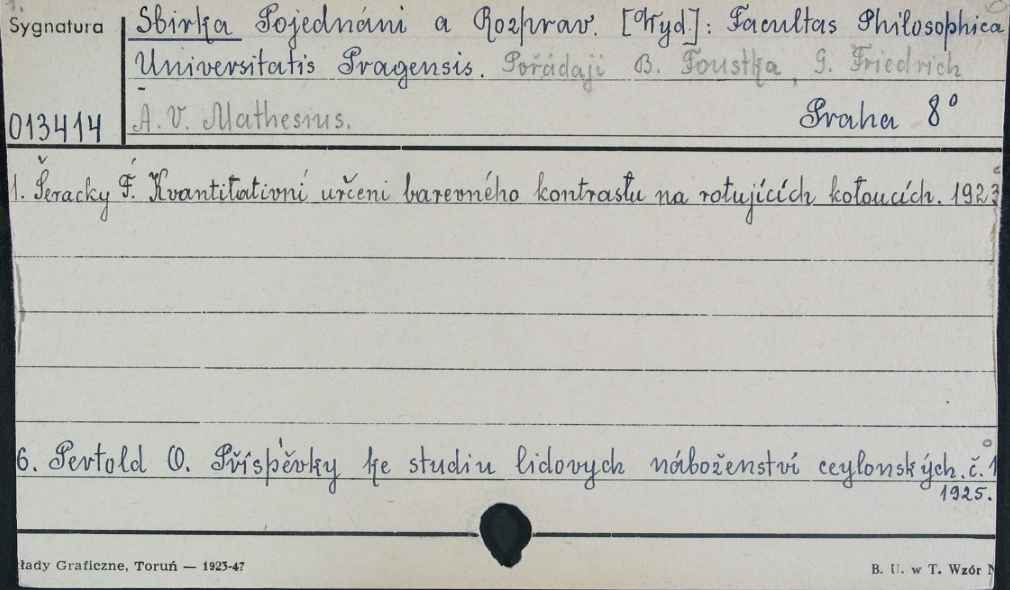 Sygnatura
Sbirka Pojednáni a Rozprav. [Wyd.]: Facultas Philosophica
Universitatis Pragensis. Pořádaji B. Foustka, G. Friedrich
A. V. Mathesius.
Praha 8°
013414
1. Šeracky F. Kvantitativní určeni barevného kontrastu na rotujících kotoucích. 1923
6. Pertold O. Příspěvky ke studiu lidovych náboženství ceylonských. č. 1
1925.
łady Graficzne, Toruń — 1923-47
B. U. w T. Wzór N